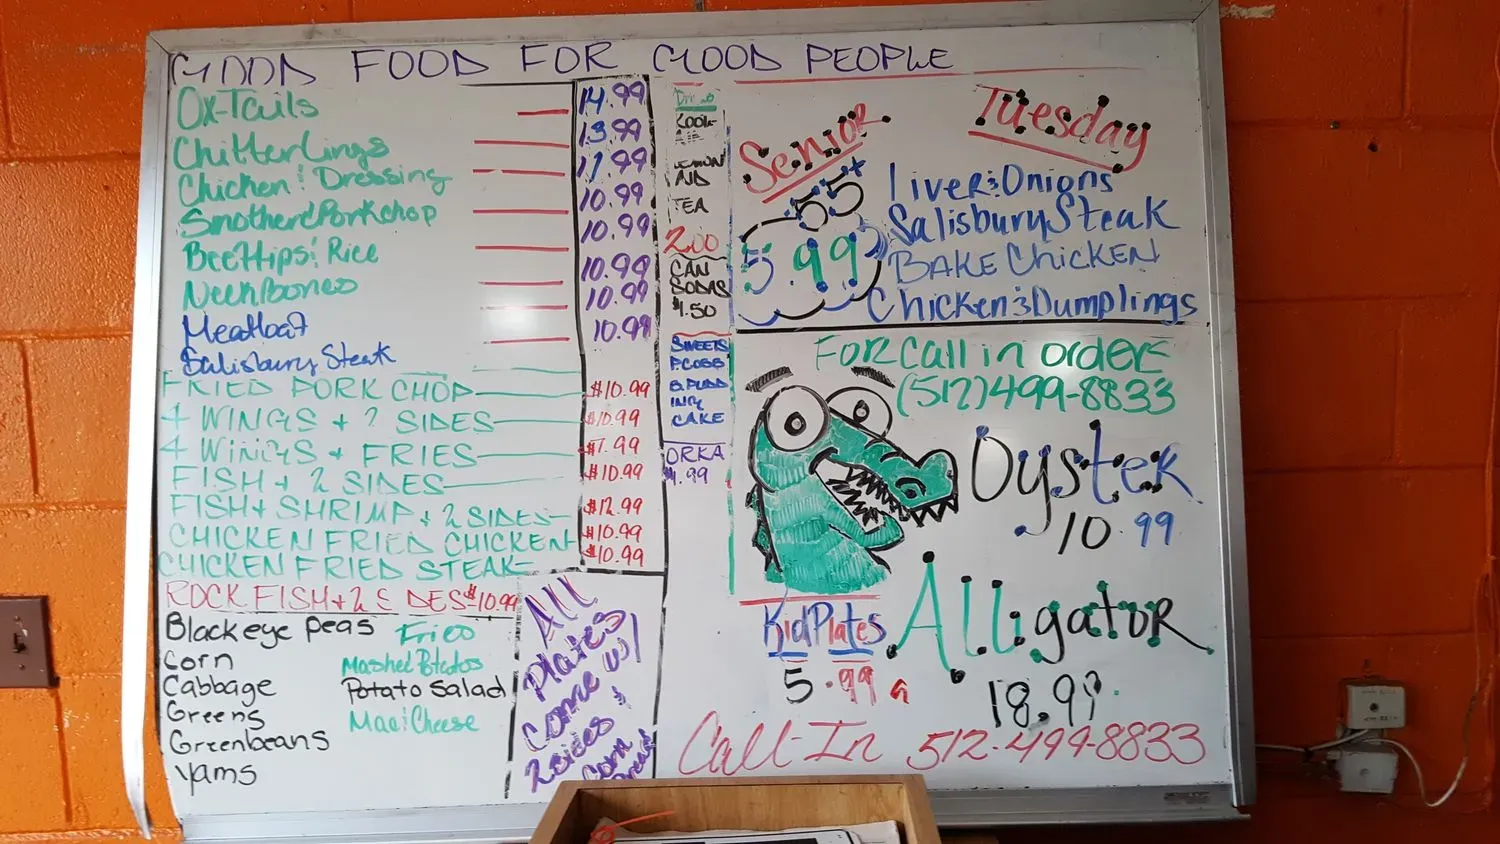 GOOD FOOD FOR GOOD PEOPLE
Ox-Tails 14.99
Chitterlings 13.99
Chicken & Dressing 11.99
Smothered Porkchop 10.99
Beeftips & Rice 10.99
Neckbones 10.99
Meatloaf 10.99
Salisbury Steak 10.99
FRIED PORK CHOP $10.99
4 WINGS + 2 SIDES $10.99
4 WINGS + FRIES $7.99
FISH + 2 SIDES $10.99
FISH + SHRIMP + 2 SIDES $12.99
CHICKEN FRIED CHICKEN $10.99
CHICKEN FRIED STEAK $10.99
ROCK FISH + 2 S DES $10.99
Blackeye peas
Corn
Cabbage
Greens
Greenbeans
Yams
Fries
Mashed Potatos
Potato Salad
Mac & Cheese
All
Plates
Come w/
2 sides &
Corn
Bread
KOOL-
LEMON
AID
TEA
2.00
CAN
SODAS
$1.50
SWEETS
P.COBB
B.PUDD
ING
CAKE
ORKA
4.99
Senior
55+
5.99
Tuesday
Liver & Onions
Salisbury Steak
BAKE CHICKEN
Chicken & Dumplings
FOR Call in order
(512)499-8833
Oyster
10.99
Alligator
18.99
KidPlates
5.99
Call-In 512-499-8833